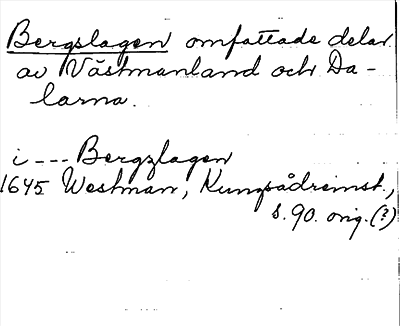 Bergslagen omfattade delar
av Västmanland och Da-
larna.
i --- Bergzlagen
1645 Westman, Kungsådreinst.,
s. 90. orig. (?)